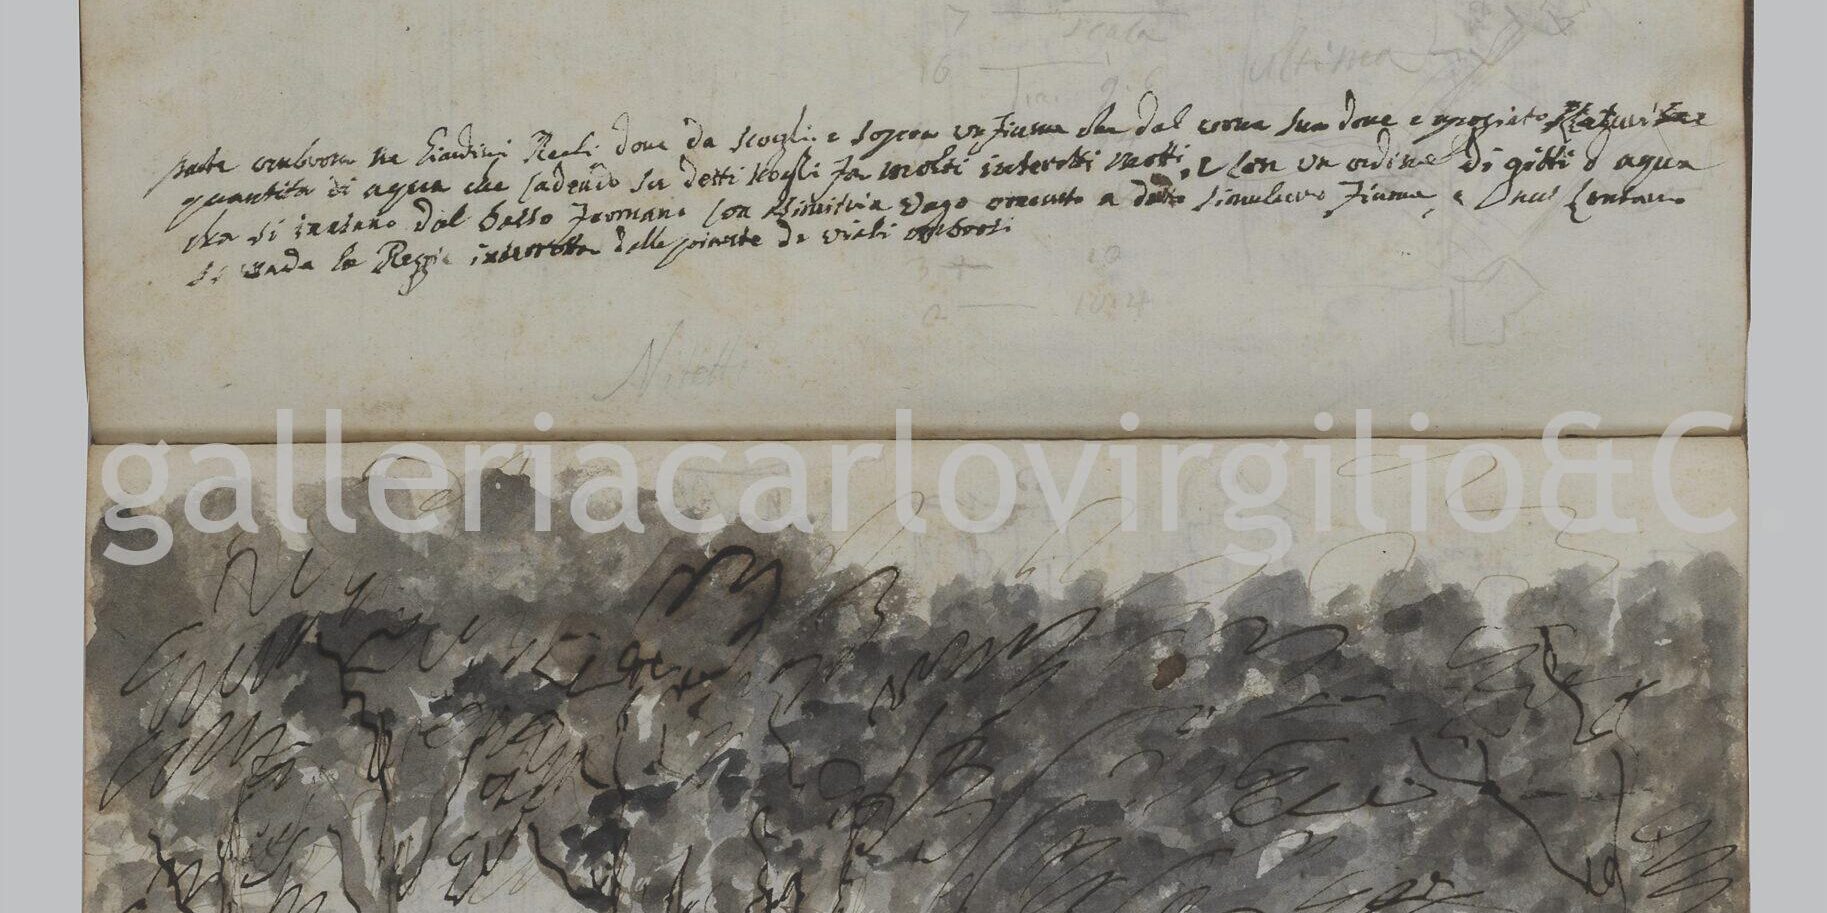 7
scala
16
ultima
parte ombrosa ne Giardini Reali dove da scogli e sopra un fiume che dal corno suo dove e apogiato
quantita di aqua che cadendo su detti scogli fa molti interotti moti, e con un ordine di gitti d aqua
che si inalano dal basso formano con simitria vago ornamto a detto simulacro fiume, e lontano
si vada la Reggia interotta dalle piante da viali ombrosi
3 10
2 10:4
Nitetti
galleriacarlovirgilio&C.